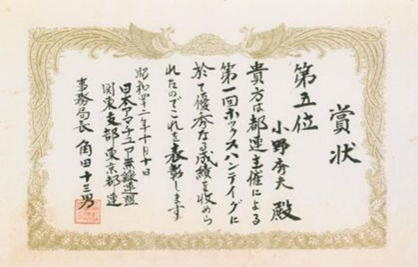 賞状
第五位
小野秀夫 殿
貴方は都連主催による
第一回ホックスハンティングに
於て優秀なる成績を収めら
れたのでこれを表彰します
昭和四十二年十月十日
日本アマチュア無線連盟
関東支部東京都連
事務局長 角田十三男